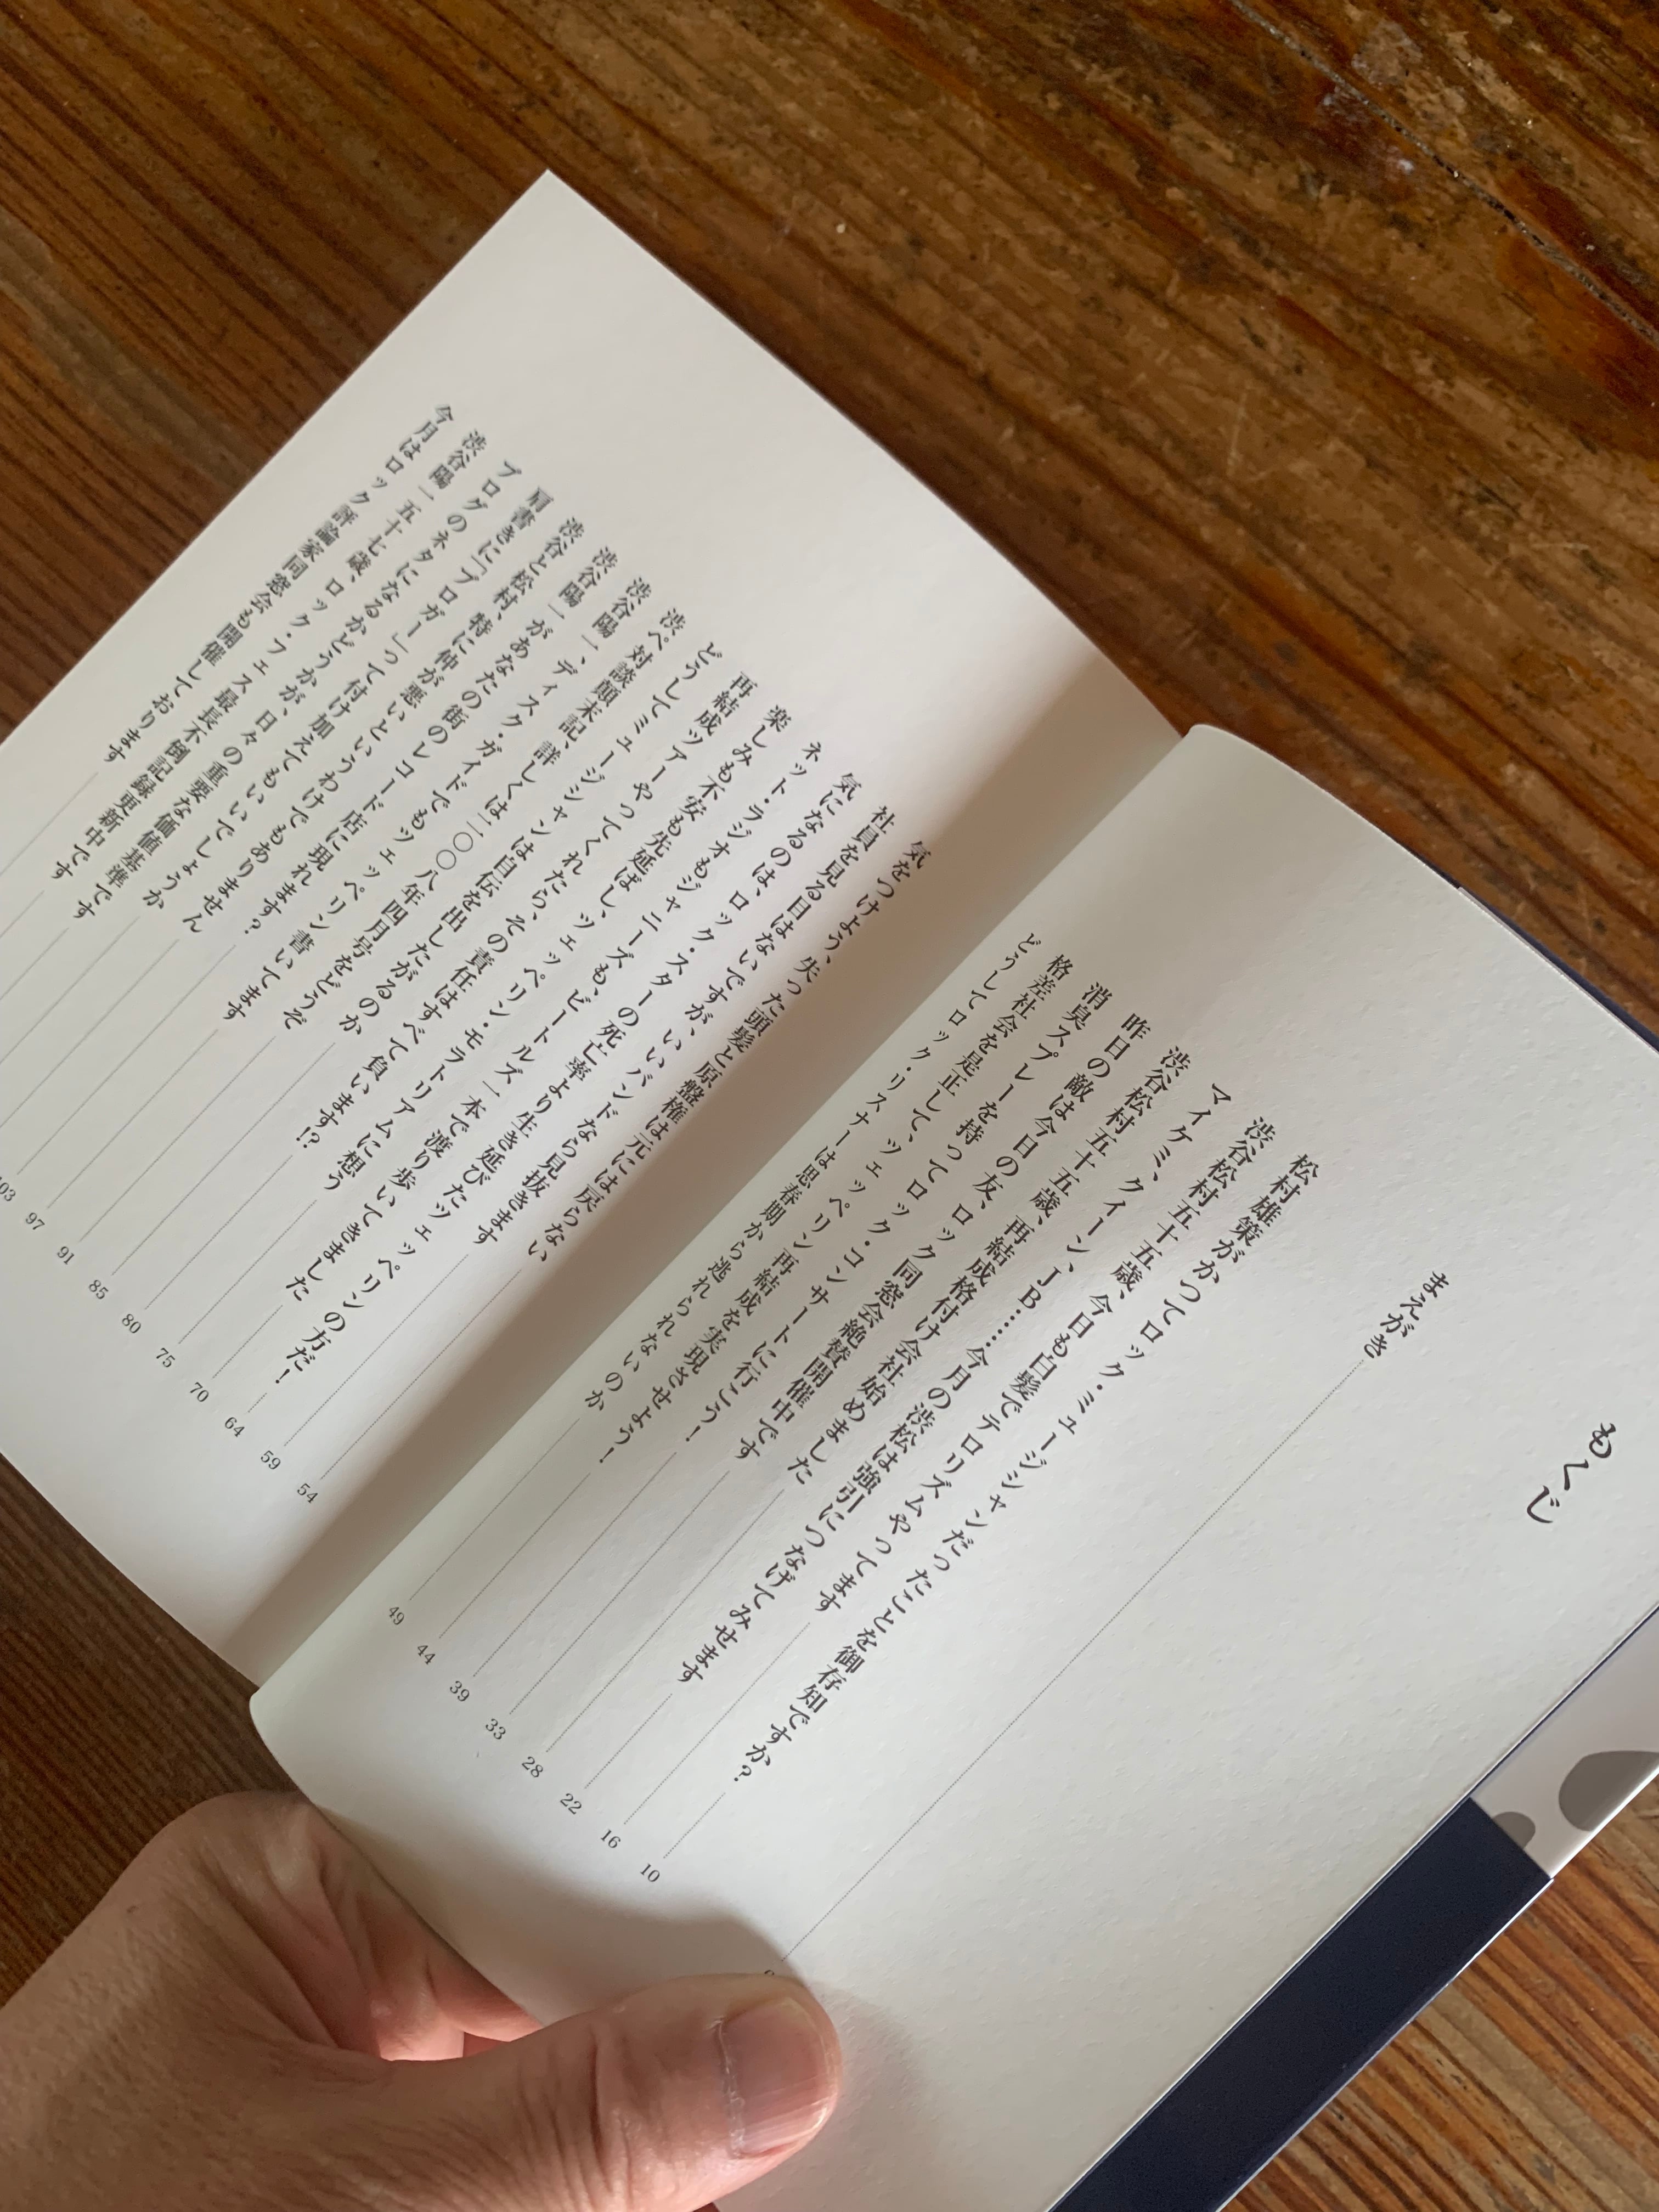 もくじ
まえがき
松村雄策がかつてロック・ミュージシャンだったことを御存知ですか? 10
渋谷松村五十五歳、今日も白髪でテロリズムやってます 16
マイケミ、クイーン、JB……今月の渋松は強引につなげてみせます 22
渋谷松村五十五歳、再結成格付け会社始めました 28
昨日の敵は今日の友、ロック同窓会絶賛開催中です 33
消臭スプレーを持ってロック・コンサートに行こう! 39
格差社会を是正して、ツェッペリン再結成を実現させよう! 44
どうしてロック・リスナーは思春期から逃れられないのか 49
気をつけよう、失った頭髪と原盤権は元には戻らない 54
社員を見る目はないですが、いいバンドなら見抜きます 59
気になるのは、ロック・スターの死亡率より生き延びたツェッペリンの方だ! 64
ネット・ラジオもジャニーズも、ビートルズ一本で渡り歩いてきました 70
楽しみも不安も先延ばし、ツェッペリン・モラトリアムに想う 75
再結成ツアーやってくれたら、その責任はすべて負います!? 80
どうしてミュージシャンは自伝を出したがるのか 85
渋ペ対談顛末記、詳しくは二〇〇八年四月号をどうぞ 91
渋谷陽一、ディスク・ガイドでもツェッペリン書いてます 97
渋谷陽一があなたの街のレコード店に現れます? 103
渋谷と松村、特に仲が悪いというわけでもありません
肩書きに「ブロガー」って付け加えてもいいでしょうか
ブログのネタになるかどうかが、日々の重要な価値基準です
渋谷陽一五十七歳、ロック・フェス最長不倒記録更新中です
今月はロック評論家同窓会も開催しております